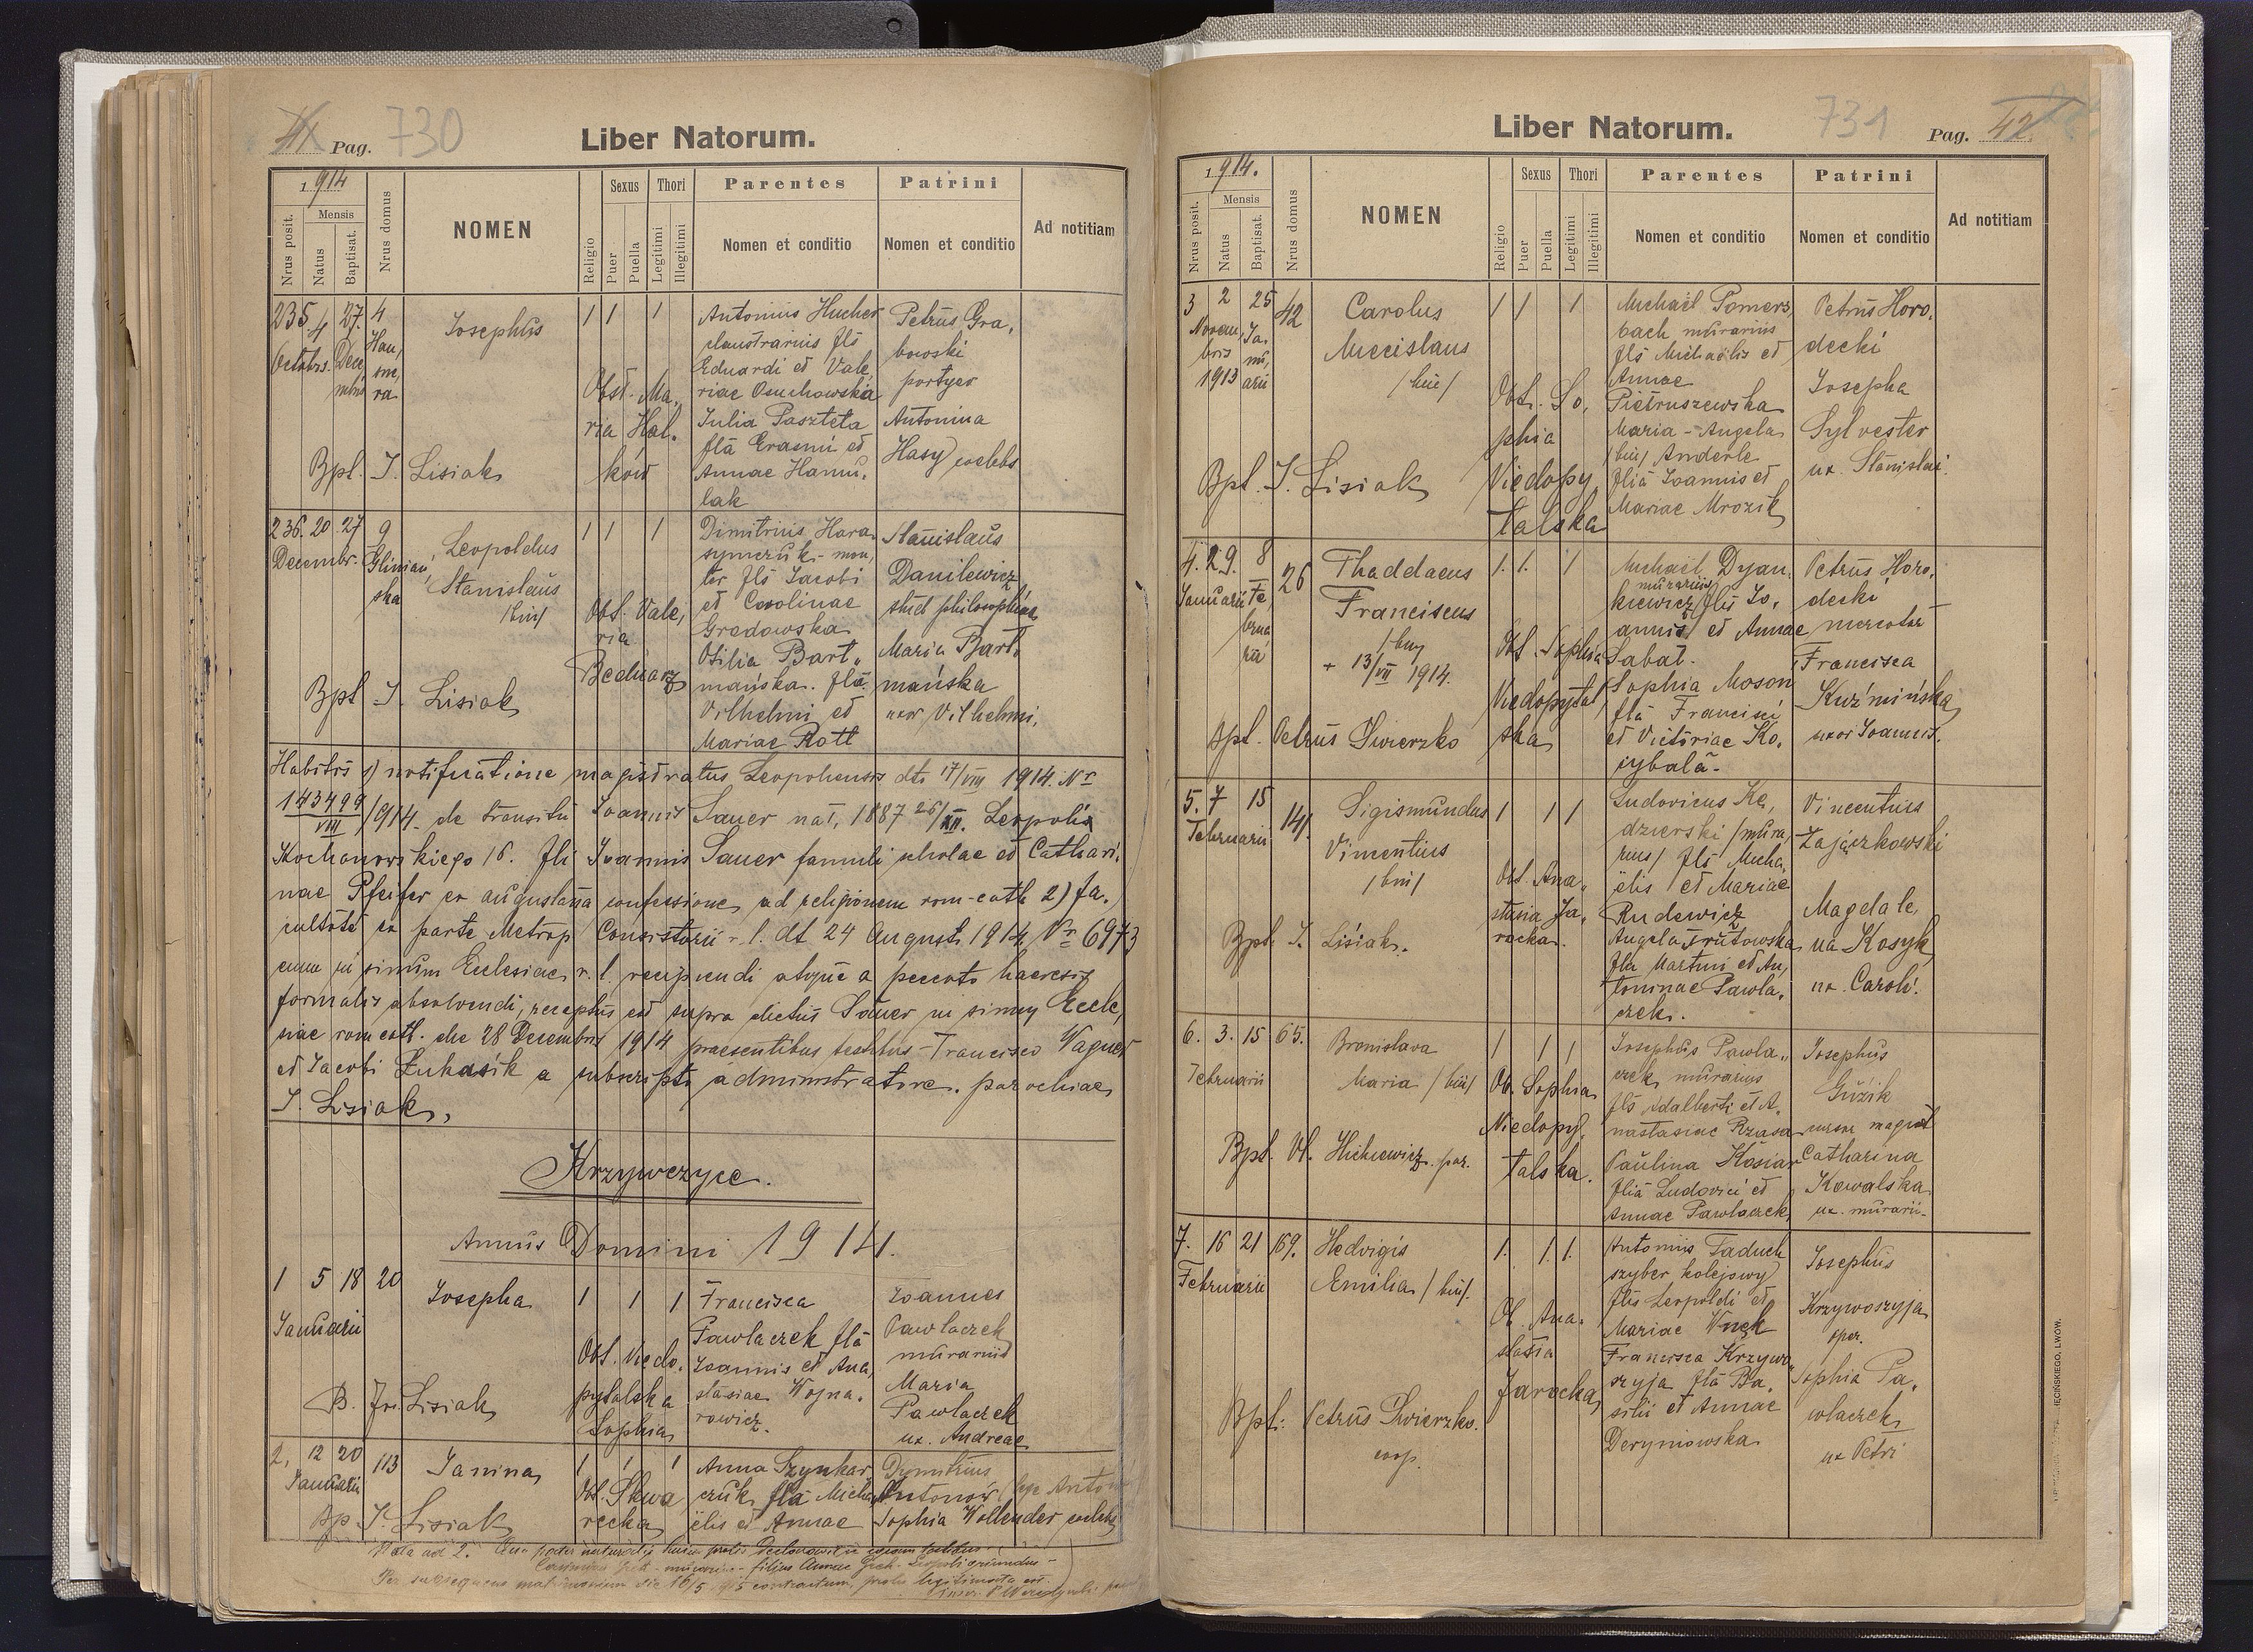 Pag. 730
Liber Natorum.
1914
Nrus posit.
Mensis
Natus
Baptisat.
Nrus domus
NOMEN
Religio
Sexus
Puer
Puella
Thori
Legitimi
Illegitimi
Parentes
Nomen et conditio
Patrini
Nomen et conditio
Ad notitiam
235. 4 27. 4
Octobrs. Dece,
mbris
Josephus
1 1 1
Obst. Ma,
ria Hal.
ków
Antonius Hucher
claustrarius fls
Eduardi et Vale,
riae Osuchowska
Julia Paszteta
flā Erasmi et
Annae Hamu,
lak
Petrus Gra,
bowski
portyer
Antonina
Hasy coelebs
Bpt. J. Lisiak
236. 20. 27 9
Decembr. Glinian,
ska
Leopoldus
Stanislaus
/bin/
1 1 1
Obst. Vale,
ria
Bednarz
Dimitrius Hara
symczuk - mon,
ter fls Jacobi
et Carolinae
Gredowska
Otilia Bart,
mańska. flā.
Vilhelmi et
Mariae Rott
Stanislaus
Danilewicz
stud philosophiae
Maria Bart,
mańska
uxor Vilhelmi.
Bpt J. Lisiak
Habitis 1) notificatione magistratus Leopoliensis dto 17/VIII 1914. Nr
143499/VIII /914. de transitu Joannis Sauer nat. 1887 26/XII. Leopolis
Kochanowskiego 16. fli Joannis Sauer famuli scholae et Cathari,
nae Pfeifer ex augustana confessione ad religionem rom-cath 2) fa.
cultate ex parte Metrop Consistorii r. l. dt 24 Augusti 1914 Nr 6973
eum in sinum Ecclesiae r. l. recipiendi atque a peccato haeresis
formalis absolvendi, receptus est supra dictus Sauer in sinum Eccle,
siae rom cath. die 28 Decembris 1914 praesentibus testibus Francisco Wagner
et Jacobi Łukasik a subscripto administratore. parochiae
J. Lisiak,
Krzywczyce.
Annus Domini 1914.
1 5 18 20
Januarii
Josepha
1 1 1
Obst. Niedo,
pytalska
Sophia
Francisca
Pawlaczek flā
Joannis et Ana,
stasiae Wojna.
rowicz.
Joannes
Pawlaczek
murarius
Maria
Pawlaczek
ux. Andreae
B. J. Lisiak
2, 12 20 113
Januarii
Janina
1 1 1
Obst. Skwa
recka
Anna Szynkar
czuk flā Micha
ëlis et Annae
Dymitrius
Antonów
Sophia Wollender coelebs
Bp J. Lisiak
Nota ad 2.
Per subsequens matrimonium die 16/5 915 contractum, proles legitimata est.
Liber Natorum.
731
Pag. 42
1914.
Nrus posit.
Mensis
Natus
Baptisat.
Nrus domus
NOMEN
Religio
Sexus
Puer
Puella
Thori
Legitimi
Illegitimi
Parentes
Nomen et conditio
Patrini
Nomen et conditio
Ad notitiam
3 2 25 42
Novem, Ja.
bris nu,
1913 arii
Carolus
Mecislaus
/bin/
1 1 1
Obst. So,
phia
Niedopy,
talska
Michaël Pomers,
bach murarius
fls Michaëlis et
Annae
Pietruszewska
Maria-Angela
/bin/ Anderle
fliā Joannis et
Mariae Mrozik
Petrus Horo,
decki
Josepha
Sylvester
ux. Stanislai.
Bpt. J. Lisiak
4. 29. 8 26
Januarii Fe,
brua
rii
Thaddaeus
Franciscus
/bin/
+ 13/VII 1914.
1. 1. 1
Obst. Sophia
Niedopytal,
ska
Michaël Dyan,
murarius
kiewicz fls Jo,
annis et Annae
Sabat.
Sophia Moson
flā Francisci
et Victoriae Ko.
cybala.
Petrus Horo,
decki
mercator
Francisca
Kuźmińska
uxor Joannis.
Bpt. Petrus Swierzko
5. 7 15 141.
Februarii
Sigismundus
Vincentius
/bin/
1 1 1
Obst. Ana,
stasia Ja,
rocka.
Ludovicus Kę,
dzierski /mura,
rius/ fls Micha,
ëlis et Mariae
Rudewicz
Angela Trutowska
flā Martini et An,
toninae Pawla,
czek.
Vincentius
Zajączkowski
Magdale,
na Kosyk
ux. Caroli.
Bpt. J. Lisiak.
6. 3. 15 65.
Februarii
Bronislava
Maria /bin/
1 1 1
Ob. Sophia
Niedopy,
talska.
Josephus Pawla,
czek murarius
fls Adalberti et A,
nastasiae Rzasa
Paulina Kosiar
fliā Ludovici et
Annae Pawlaczek
Josephus
Guzik
magist
Catharina
Kowalska
ux. murarii.
Bpt. Vl. Hickiewicz. par.
7. 16 21 169.
Februarii
Hedvigis
Emilia /bin/.
1. 1. 1.
Ob. Ana.
stasia
Jarocka
Antonius Taduch
szyber kolejowy
fls Leopoldi et
Mariae Wnęk
Francisca Krzywo,
szyja flā Ba,
silii et Annae
Deryniowska
Josephus
Krzywoszyja
oper.
Sophia Pa,
wlaczek
ux Petri
Bpt: Petrus Swierzko.
coop.